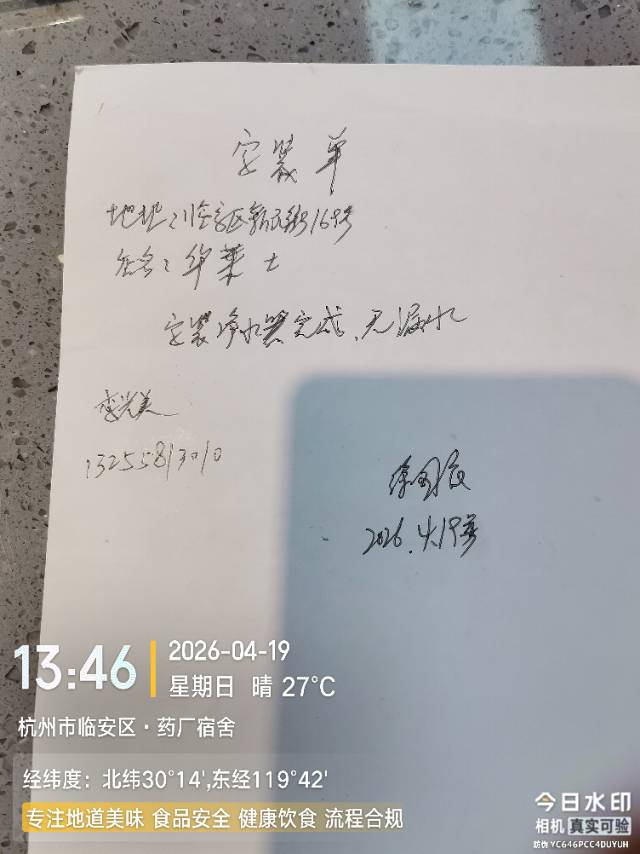 安装单
地址:临安区新民街169号
店名:华莱士
安装净水器完成、无漏水
李光美
13255813010
徐国
2026.4.19号
13:46
2026-04-19
星期日 晴 27°C
杭州市临安区·药厂宿舍
经纬度:北纬30°14',东经119°42'
专注地道美味 食品安全 健康饮食 流程合规
今日水印
相机 真实可验
防伪 YC646PCC4DUYUH